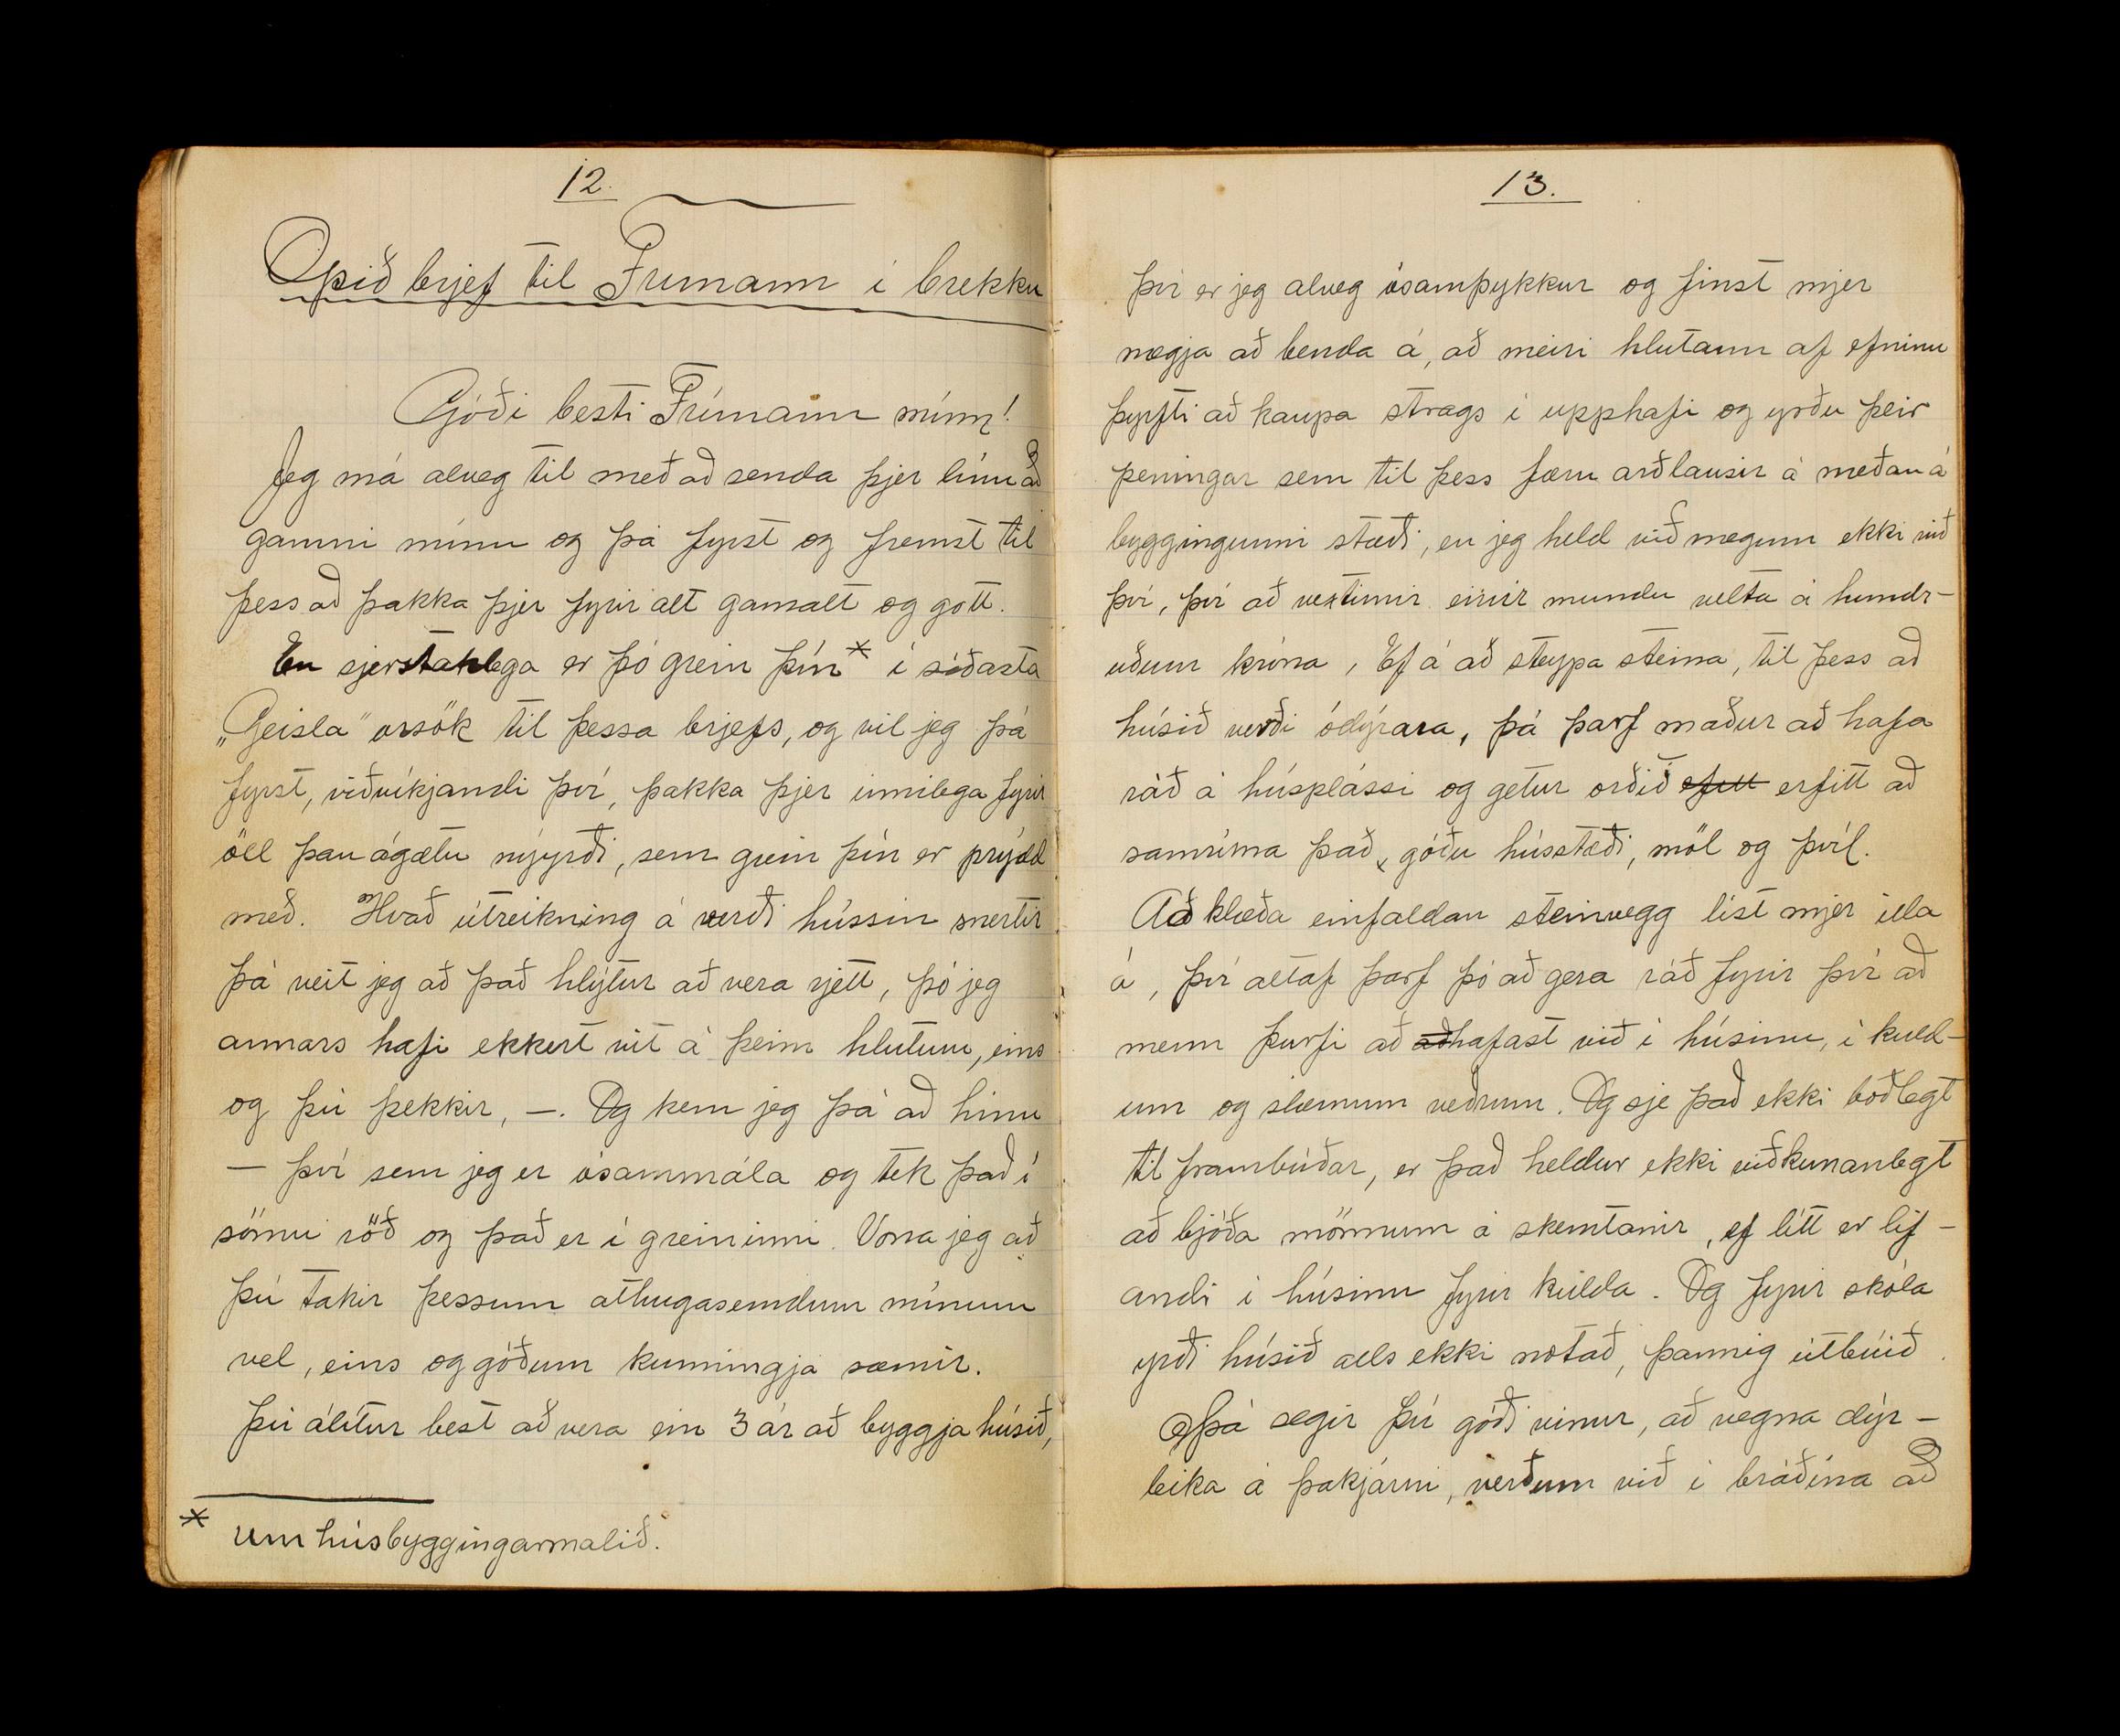 12.
Opið brjef til Frímann í brekku
Góði besti Frímann minn!
Jeg má alveg til með að senda þjer línu að
gamni mínu og þá fyrst og fremst til
þess að þakka þjer fyrir alt gamalt og gott.
En sjerstaklega er þó grein þín* í síðasta
„Geisla" orsök til þessa brjefs, og vil jeg þá
fyrst, viðvíkjandi því, þakka þjer innilega fyrir
öll þau ágætu nýyrði, sem grein þín er prýdd
með. Hvað útreikning á verði hússin snertir
þá veit jeg að það hlýtur að vera rjett, þó jeg
annars hafi ekkert vit á þeim hlutum, eins
og þú þekkir, —. Og kem jeg þá að hinu
— því sem jeg er ósammála og tek það í
sömu röð og það er í greininni. Vona jeg að
þú takir þessum athugasemdum mínum
vel, eins og góðum kunningja sæmir.
Þú álítur best að vera ein 3 ár að byggja húsið,
* um húsbyggingarmalið.
13.
því er jeg alveg ósamþykkur og finst mjer
nægja að benda á, að meiri hlutann af efninu
þyrfti að kaupa strags í upphafi og yrðu þeir
peningar sem til þess færu arðlausir á meðan á
byggingunni stæði, en jeg held við megum ekki við
því, því að vextirnir einir mundu velta á hundr-
uðum króna, Ef á að steypa steina, til þess að
húsið verði ódýrara, þá þarf maður að hafa
ráð á húsplássi og getur orðið efitt erfitt að
samríma það, góðu hússtæði, möl og þvíl.
Að klæða einfaldan steinvegg líst mjer illa
á, því altaf þarf þó að gera ráð fyrir því að
menn þurfi að að hafast við í húsinu, í kuld-
um og slæmum veðrum. Og sje það ekki boðlegt
til frambúðar, er það heldur ekki viðkunanlegt
að bjóða mönnum á skemtanir, ef lítt er líf-
andi í húsinu fyrir kulda. Og fyrir skóla
yrði húsið alls ekki notað, þannig útbúið.
Þá segir þú góði vinur, að vegna dýr-
leika á þakjárni, verðum við í bráðína að